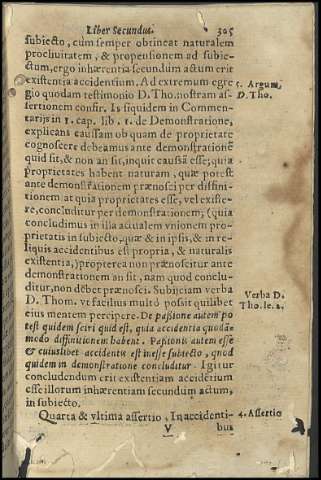 Liber Secundus. 305
subiecto, cùm semper obtineat naturalem
procliuitatem, & propensionem ad subie-
ctum, ergo inhærentia secundum actum erit
existentia accidentium. Ad extremum egre
gio quodam testimonio D. Tho. nostram as-
sertionem confir. Is siquidem in Commen-
tarijs in 1. cap. lib. 1. de Demonstratione,
explicans caussam ob quam de proprietate
cognoscere debeamus ante demonstrationē
quid sit, & non an sit, inquit caussā esse; quia
proprietates habent naturam, quæ potest
ante demonstrationem prænosci per diffini-
tionem at quia proprietates esse, vel existe-
re, concluditur per demonstrationem; (quia
concludimus in illa actualem vnionem pro-
prietatis in subiecto, quæ & in ipsis, & in re-
liquis accidentibus est propria, & naturalis
existentia,) propterea non prænoscitur ante
demonstrationem an sit, nam quod conclu-
ditur, non débet prænosci. Subijciam verba
D. Thom. vt facilius multò possit quilibet
eius mentem percipere. De passione autem po
test quidem sciri quid est, quia accidentia quodā-
modo diffinitionem habent. Passionis autem esse
& cuiuslibet accidentis est inesse subiecto, quod
quidem in demonstratione concluditur. Igitur
concludendum erit existentiam accidētium
esse illorum inhærentiam secundum actum,
in subiecto.
Quarta & vltima assertio, In accidenti-
V bus
5. Argum.
D. Tho.
Verba D.
Tho. le. 2.
4. Assertio